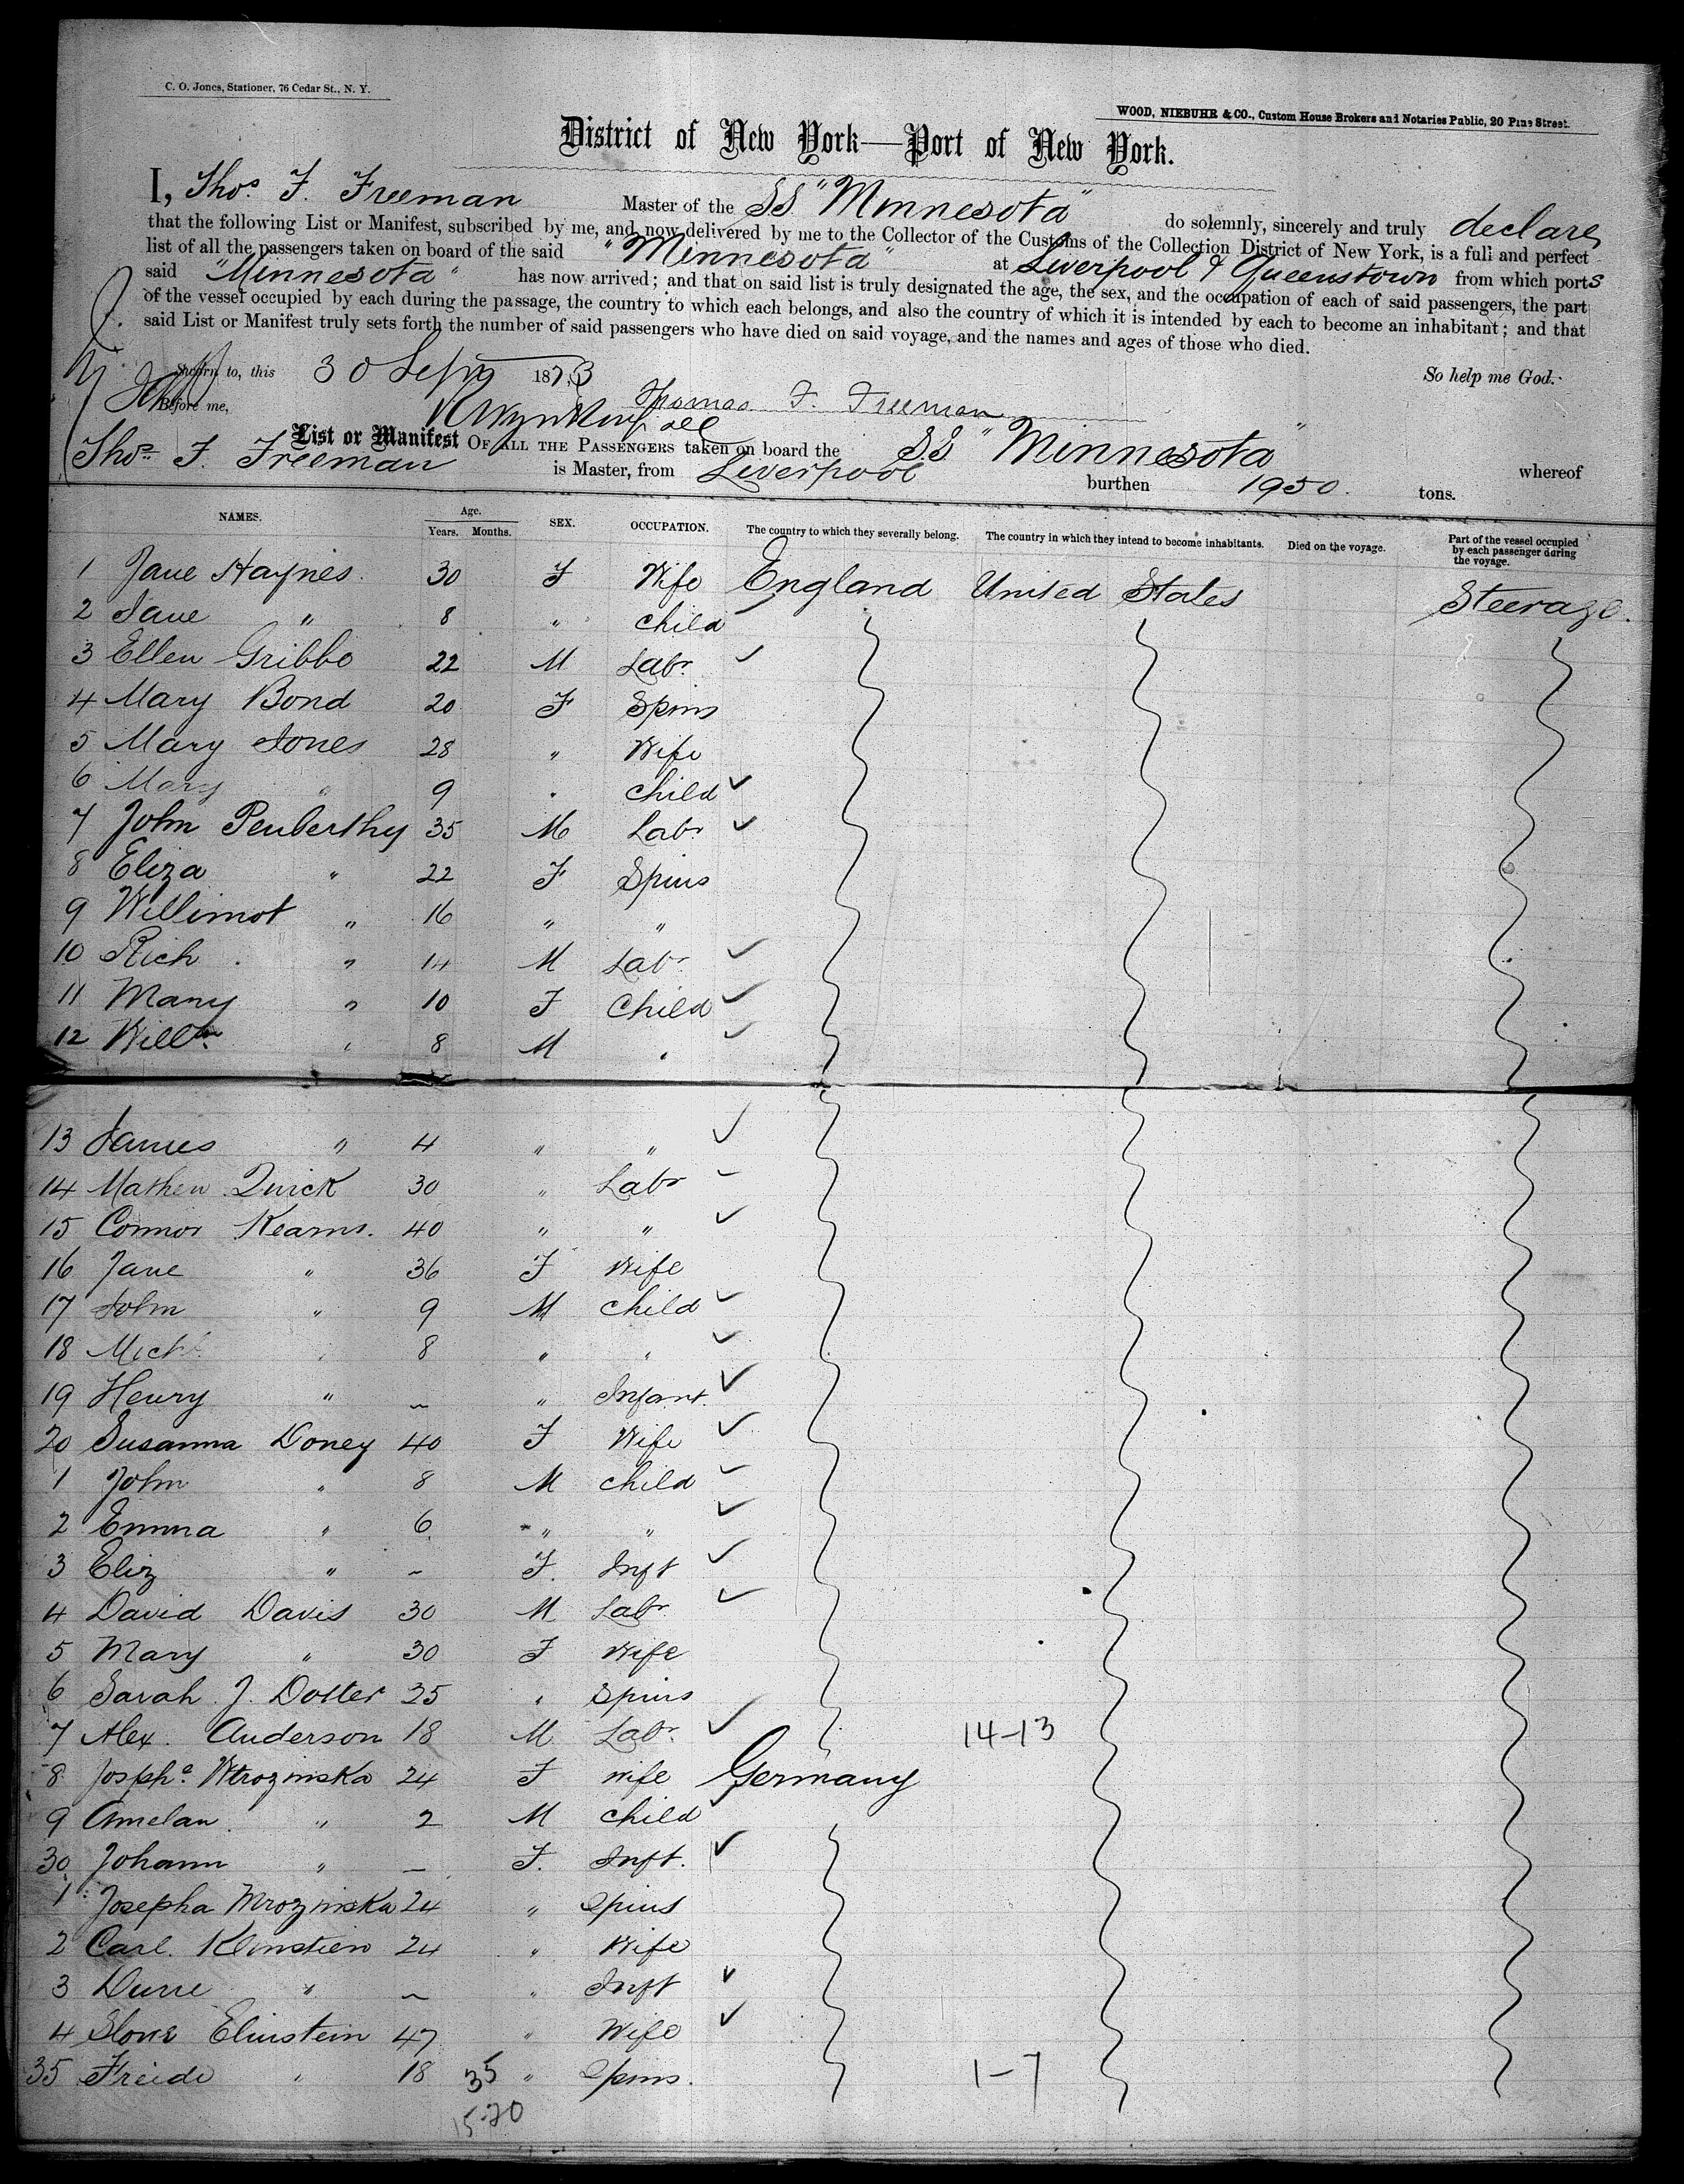 C. O. Jones, Stationer, 76 Cedar St., N. Y.
WOOD, NIEBUHR & CO., Custom House Brokers and Notaries Public, 20 Pine Street.
District of New York—Port of New York.
I, Thos. F. Freeman Master of the SS "Minnesota" do solemnly, sincerely and truly declare
that the following List or Manifest, subscribed by me, and now delivered by me to the Collector of the Customs of the Collection District of New York, is a full and perfect
list of all the passengers taken on board of the said "Minnesota" at Liverpool & Queenstown from which ports
said "Minnesota" has now arrived; and that on said list is truly designated the age, the sex, and the occupation of each of said passengers, the part
of the vessel occupied by each during the passage, the country to which each belongs, and also the country of which it is intended by each to become an inhabitant; and that
said List or Manifest truly sets forth the number of said passengers who have died on said voyage, and the names and ages of those who died.
Sworn to, this 30 Sept 1873 So help me God.
Before me, Thomas F. Freeman
List or Manifest OF ALL THE PASSENGERS taken on board the SS "Minnesota" whereof
Thos. F. Freeman is Master, from Liverpool burthen 1950 tons.
NAMES. Age. Years. Months. SEX. OCCUPATION. The country to which they severally belong. The country in which they intend to become inhabitants. Died on the voyage. Part of the vessel occupied by each passenger during the voyage.
1 Jane Haynes 30 F Wife England United States Steerage.
2 Jane " 8 " Child
3 Ellen Gribbo 22 M Labr
4 Mary Bond 20 F Spins
5 Mary Jones 28 " Wife
6 Mary " 9 " Child
7 John Penberthy 35 M Labr
8 Eliza " 22 F Spins
9 Willimot " 16 " "
10 Rich " 14 M Labr
11 Mary " 10 F Child
12 Willm " 8 M "
13 James " 4 " "
14 Mathew Quick 30 " Labr
15 Connor Kearns. 40 " "
16 Jane " 36 F Wife
17 John " 9 M Child
18 Michl " 8 " "
19 Henry " ~ " Infant.
20 Susanna Doney 40 F Wife
1 John " 8 M Child
2 Emma " 6 " "
3 Eliz " ~ F. Inft
4 David Davis 30 M Labr
5 Mary " 30 F Wife
6 Sarah J. Dotter 25 " Spins
7 Alex. Anderson 18 M Labr 14-13
8 Josphe. Wtrozinska 24 F Wife Germany
9 Amelan " 2 M Child
30 Johann " — F. Inft.
1 Josepha Mrozinska 24 " Spins
2 Carl. Klinstien 24 " Wife
3 Durre " ~ " Inft
4 Elinstein 47 " Wife
35 Freide " 18 " Spins. 1-7
35
15-20